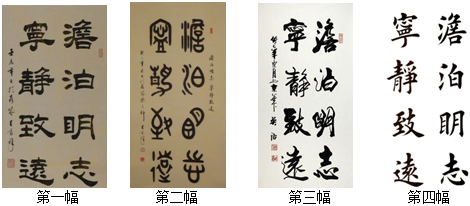 澹泊明志
寧靜致遠
澹泊明志
寧靜致遠
澹泊明志
寧靜致遠
澹泊明志
寧靜致遠
第一幅
第二幅
第三幅
第四幅